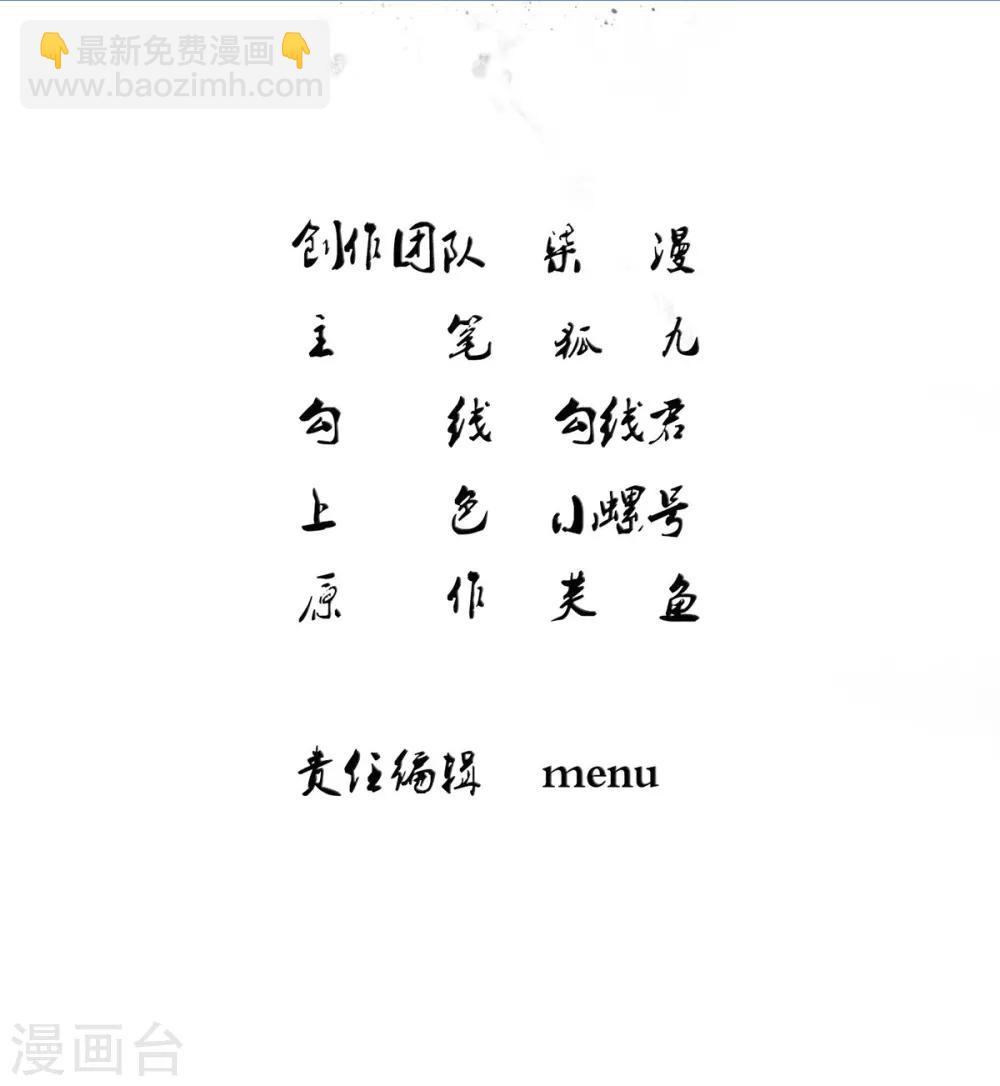 👇最新免费漫画👇
www.baozimh.com
创作团队 柒漫
主笔 狐九
勾线 勾线君
上色 小螺号
原作 芙鱼
责任编辑 menu
漫画台